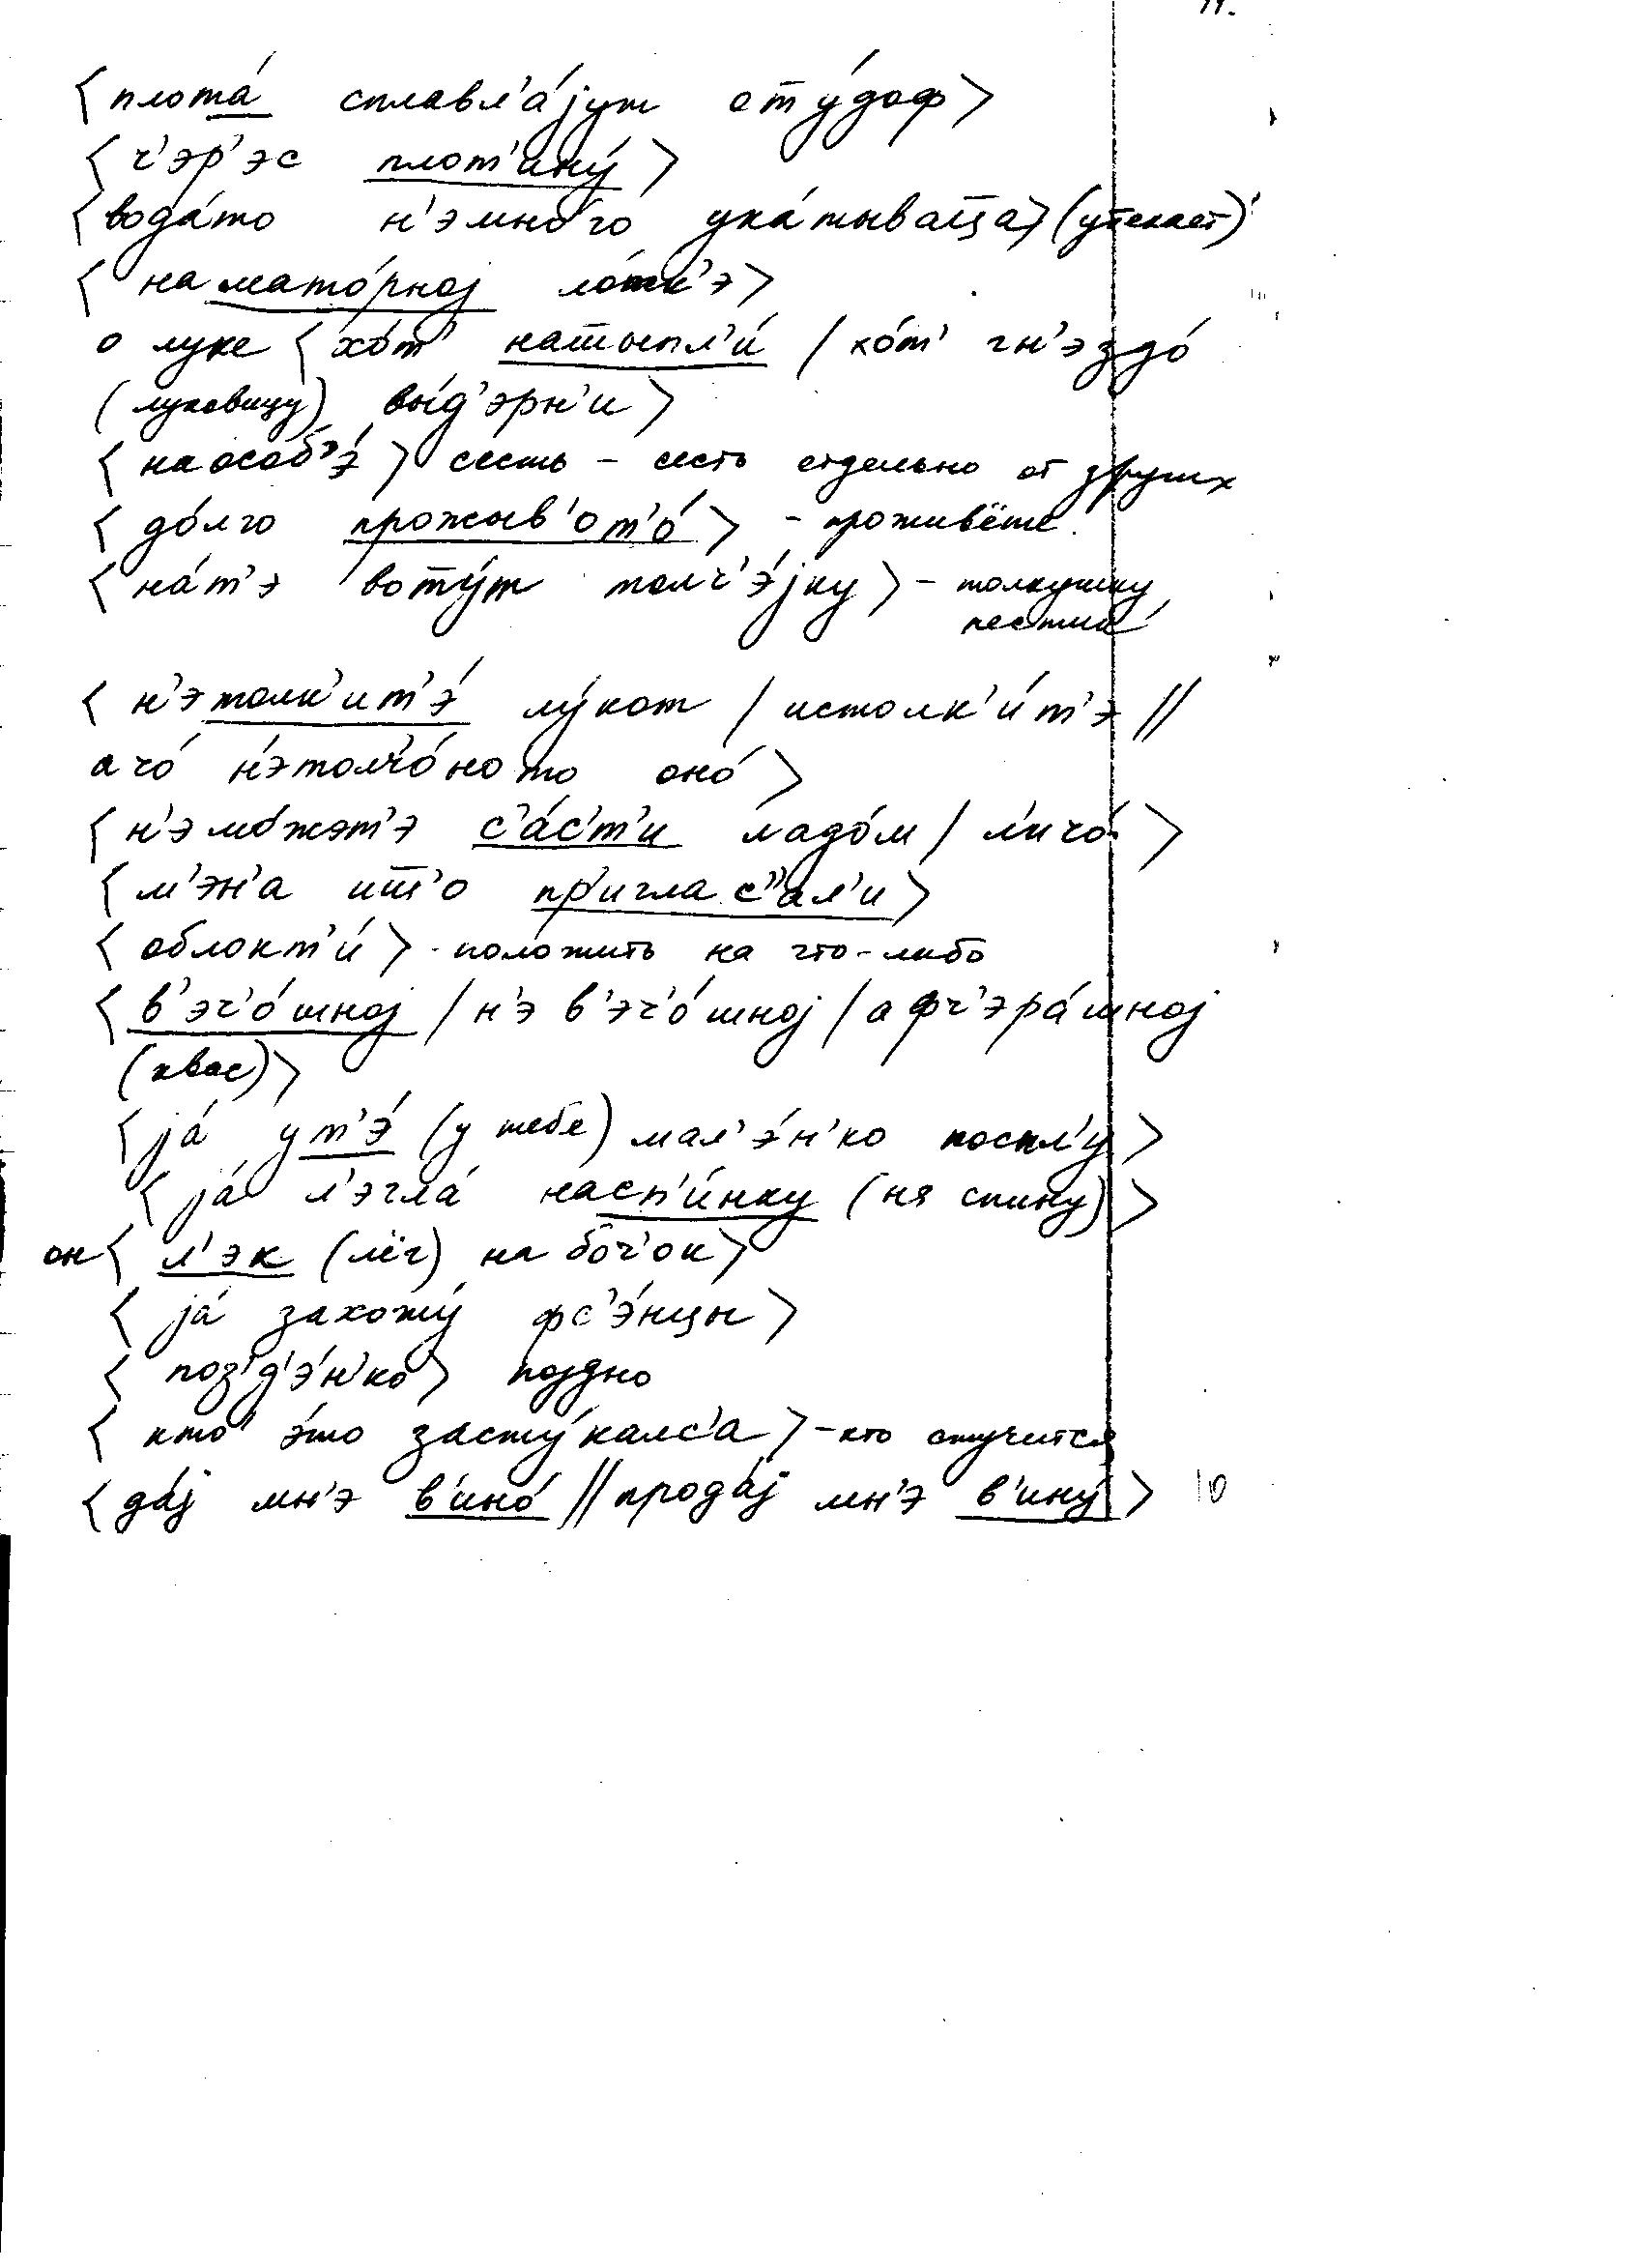 11.
⟨плота́ сплавл'а́јут от̄у́доф⟩
⟨ч'эр'эс плот'ину́⟩
⟨вода́то н'эмно́го ука́тываца⟩ (утекает)
⟨на мато́рној ло́тк'э⟩
о луке ⟨хо́т' нат̄ыпл'и́ / хо́т' гн'эздо́
(луковицу) вы́д'эрн'и⟩
⟨на особ'э́⟩ сесть – сесть отдельно от других
⟨до́лго прожыв'от'о́⟩ – проживёте.
⟨на́т'э вот̄у́т толч'э́јку⟩ – толкушку
пестик
⟨н'э толк'ит'э́ лу́кот / истолк'и́т'э //
а чо́ н'этолч'о́но то оно́⟩
⟨н'э мо́жэт'э с'а́с'т'и ладо́м / л'и чо́⟩
⟨м'эн'а ит̄'о пр'иглас''ал'и⟩
⟨облокт'и́⟩ - положить на что-либо
⟨в'эч'о́шној / н'э в'эч'о́шној / а фч'эра́шној
(квас)⟩
⟨ја́ у т'э́ (у тебе) мал'э́н'ко поспл'у́⟩
⟨ја́ л'эгла́ насп'и́нку (на спину)⟩
он ⟨л'эк (лёг) на бо́ч'ок⟩
⟨ја́ захожу́ фс'э́нцы⟩
⟨поз'д'э́н'ко⟩ поздно
⟨кто́ э́то засту́калс'а⟩ – кто стучится
⟨да́ј мн'э в'ино́ // прода́ј мн'э в'ину́⟩ 10